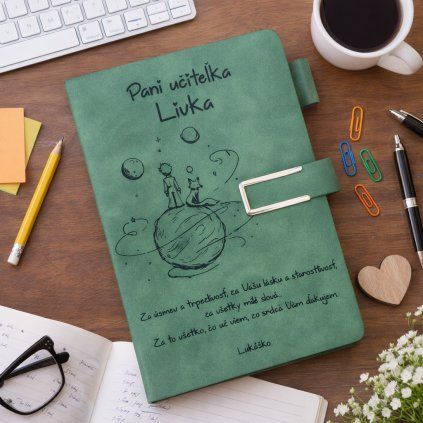 Pani učiteľka
Livka
Za úsmev a trpezlivosť, za Vašu lásku a starostlivosť,
za všetky milé slová...
Za to všetko, čo už viem, zo srdca Vám ďakujem.
Lukáško